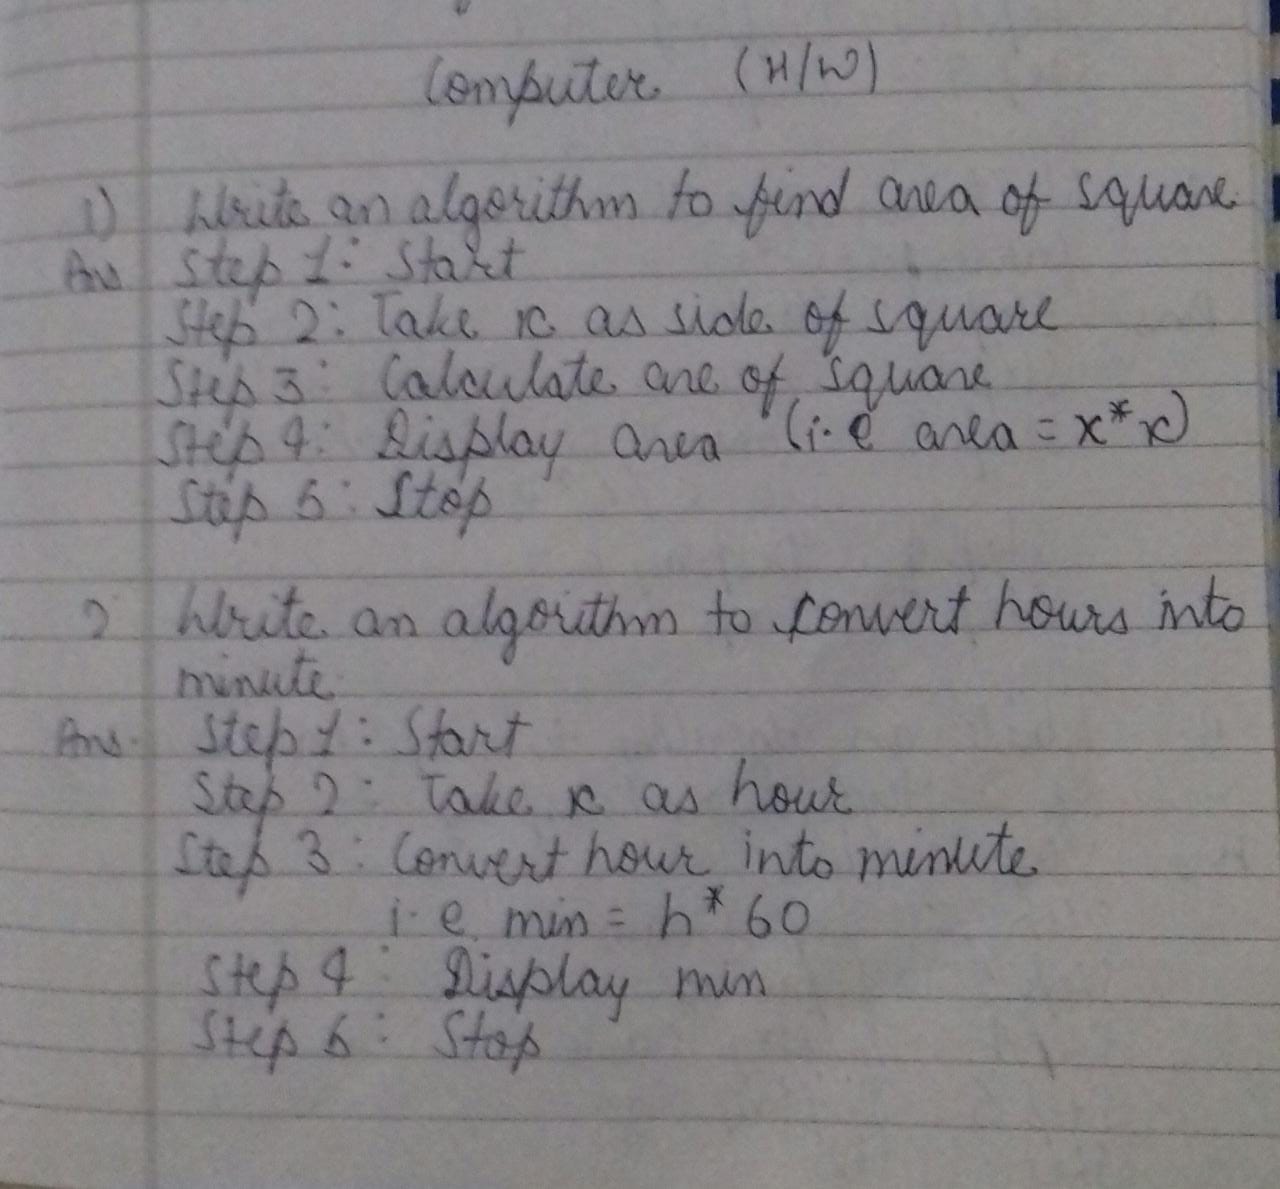 Computer (H/W)
1) Write an algorithm to find area of square
Ans Step 1: Start
Step 2: Take x as side of square
Step 3: Calculate are of square
Step 4: Display area (i.e area = x*x)
Step 5: Stop
2 Write an algorithm to convert hours into
minute
Ans. Step 1: Start
Step 2: Take x as hour
Step 3: Convert hour into minute
i.e. min = h* 60
Step 4: Display min
Step 5: Stop